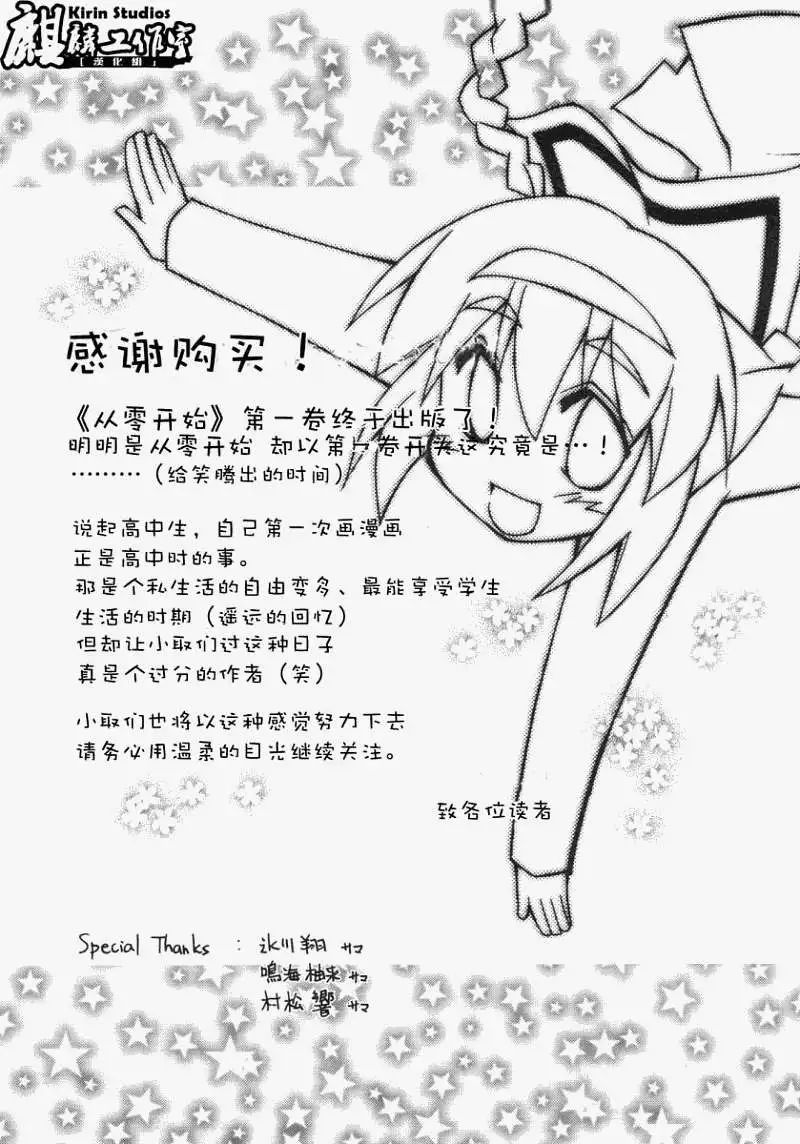 Kirin Studios
麒麟工作室
[汉化组]
感谢购买！
《从零开始》第一卷终于出版了！
明明是从零开始 却以第一卷开头这究竟是…！
………（给笑腾出的时间）
说起高中生，自己第一次画漫画
正是高中时的事。
那是个私生活的自由变多、最能享受学生
生活的时期（遥远的回忆）
但却让小取们过这种日子
真是个过分的作者（笑）
小取们也将以这种感觉努力下去
请务必用温柔的目光继续关注。
致各位读者
Special Thanks : 氷川翔 サマ
鳴海柚来 サマ
村松 響 サマ